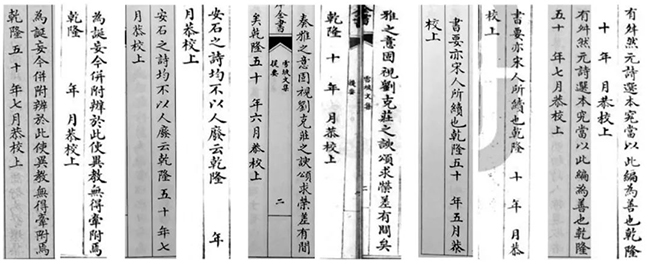 有舛然元詩選本究當以此編為善也乾隆
十 年 月恭校上
有舛然元詩選本究當以此編為善也乾隆
五十 年七月恭校上
書要亦宋人所續也乾隆 十 年 月恭
校上
書要亦宋人所續也乾隆五十 年五月恭
校上
雅之意固視劉克莊之諛頌求榮差有間矣
雪坡文集 提要 二
全書
乾隆 十 年 月恭校上
奏雅之意固視劉克莊之諛頌求榮差有間
全書 雪坡文集 提要 二
矣乾隆五十 年六月恭校上
安石之詩均不以人廢云乾隆 年
月恭校上
安石之詩均不以人廢云乾隆五十 年七
月恭校上
為誕妄今併附辨於此使異教無得牽附焉
乾隆 年 月恭校上
為誕妄今併附辨於此使異教無得牽附焉
乾隆五十 年七月恭校上